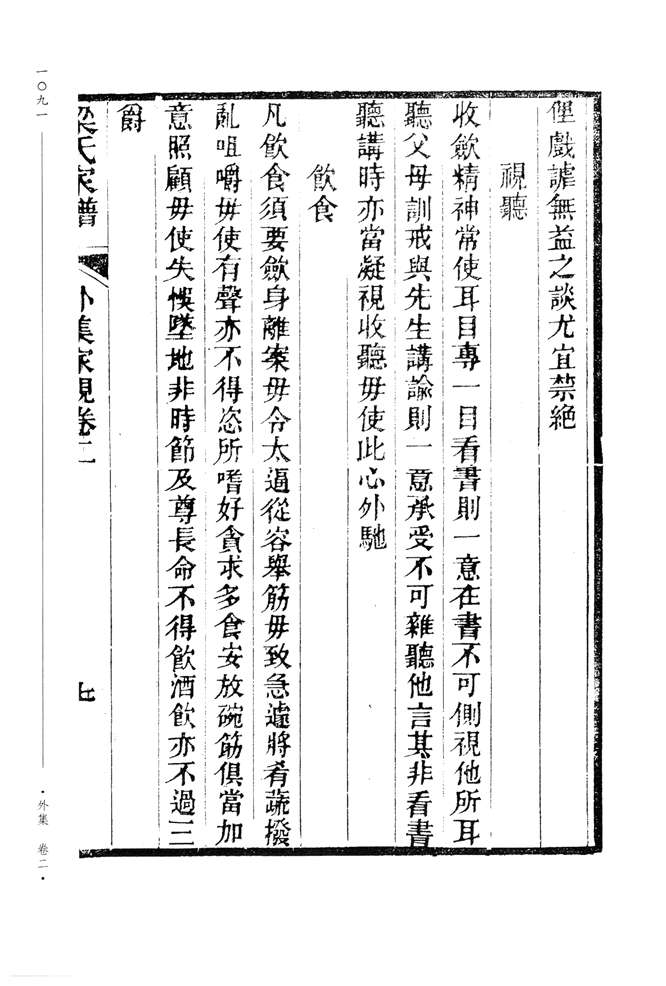 俚戲謔無益之談尤宜禁絕
視聽
收歛精神常使耳目專一目看書則一意在書不可側視他所耳
聽父母訓戒與先生講諭則一意承受不可雜聽他言其非看書
聽講時亦當凝視收聽毋使此心外馳
飲食
凡飲食須要歛身離案毋令太逼從容舉筯毋致急遽將肴蔬撥
亂咀嚼毋使有聲亦不得恣所嗜好貪求多食安放碗筯俱當加
意照顧毋使失悞墜地非時節及尊長命不得飲酒飲亦不過三
爵
梁氏家譜 外集家規卷二 七
一〇九一
·外集 卷二·